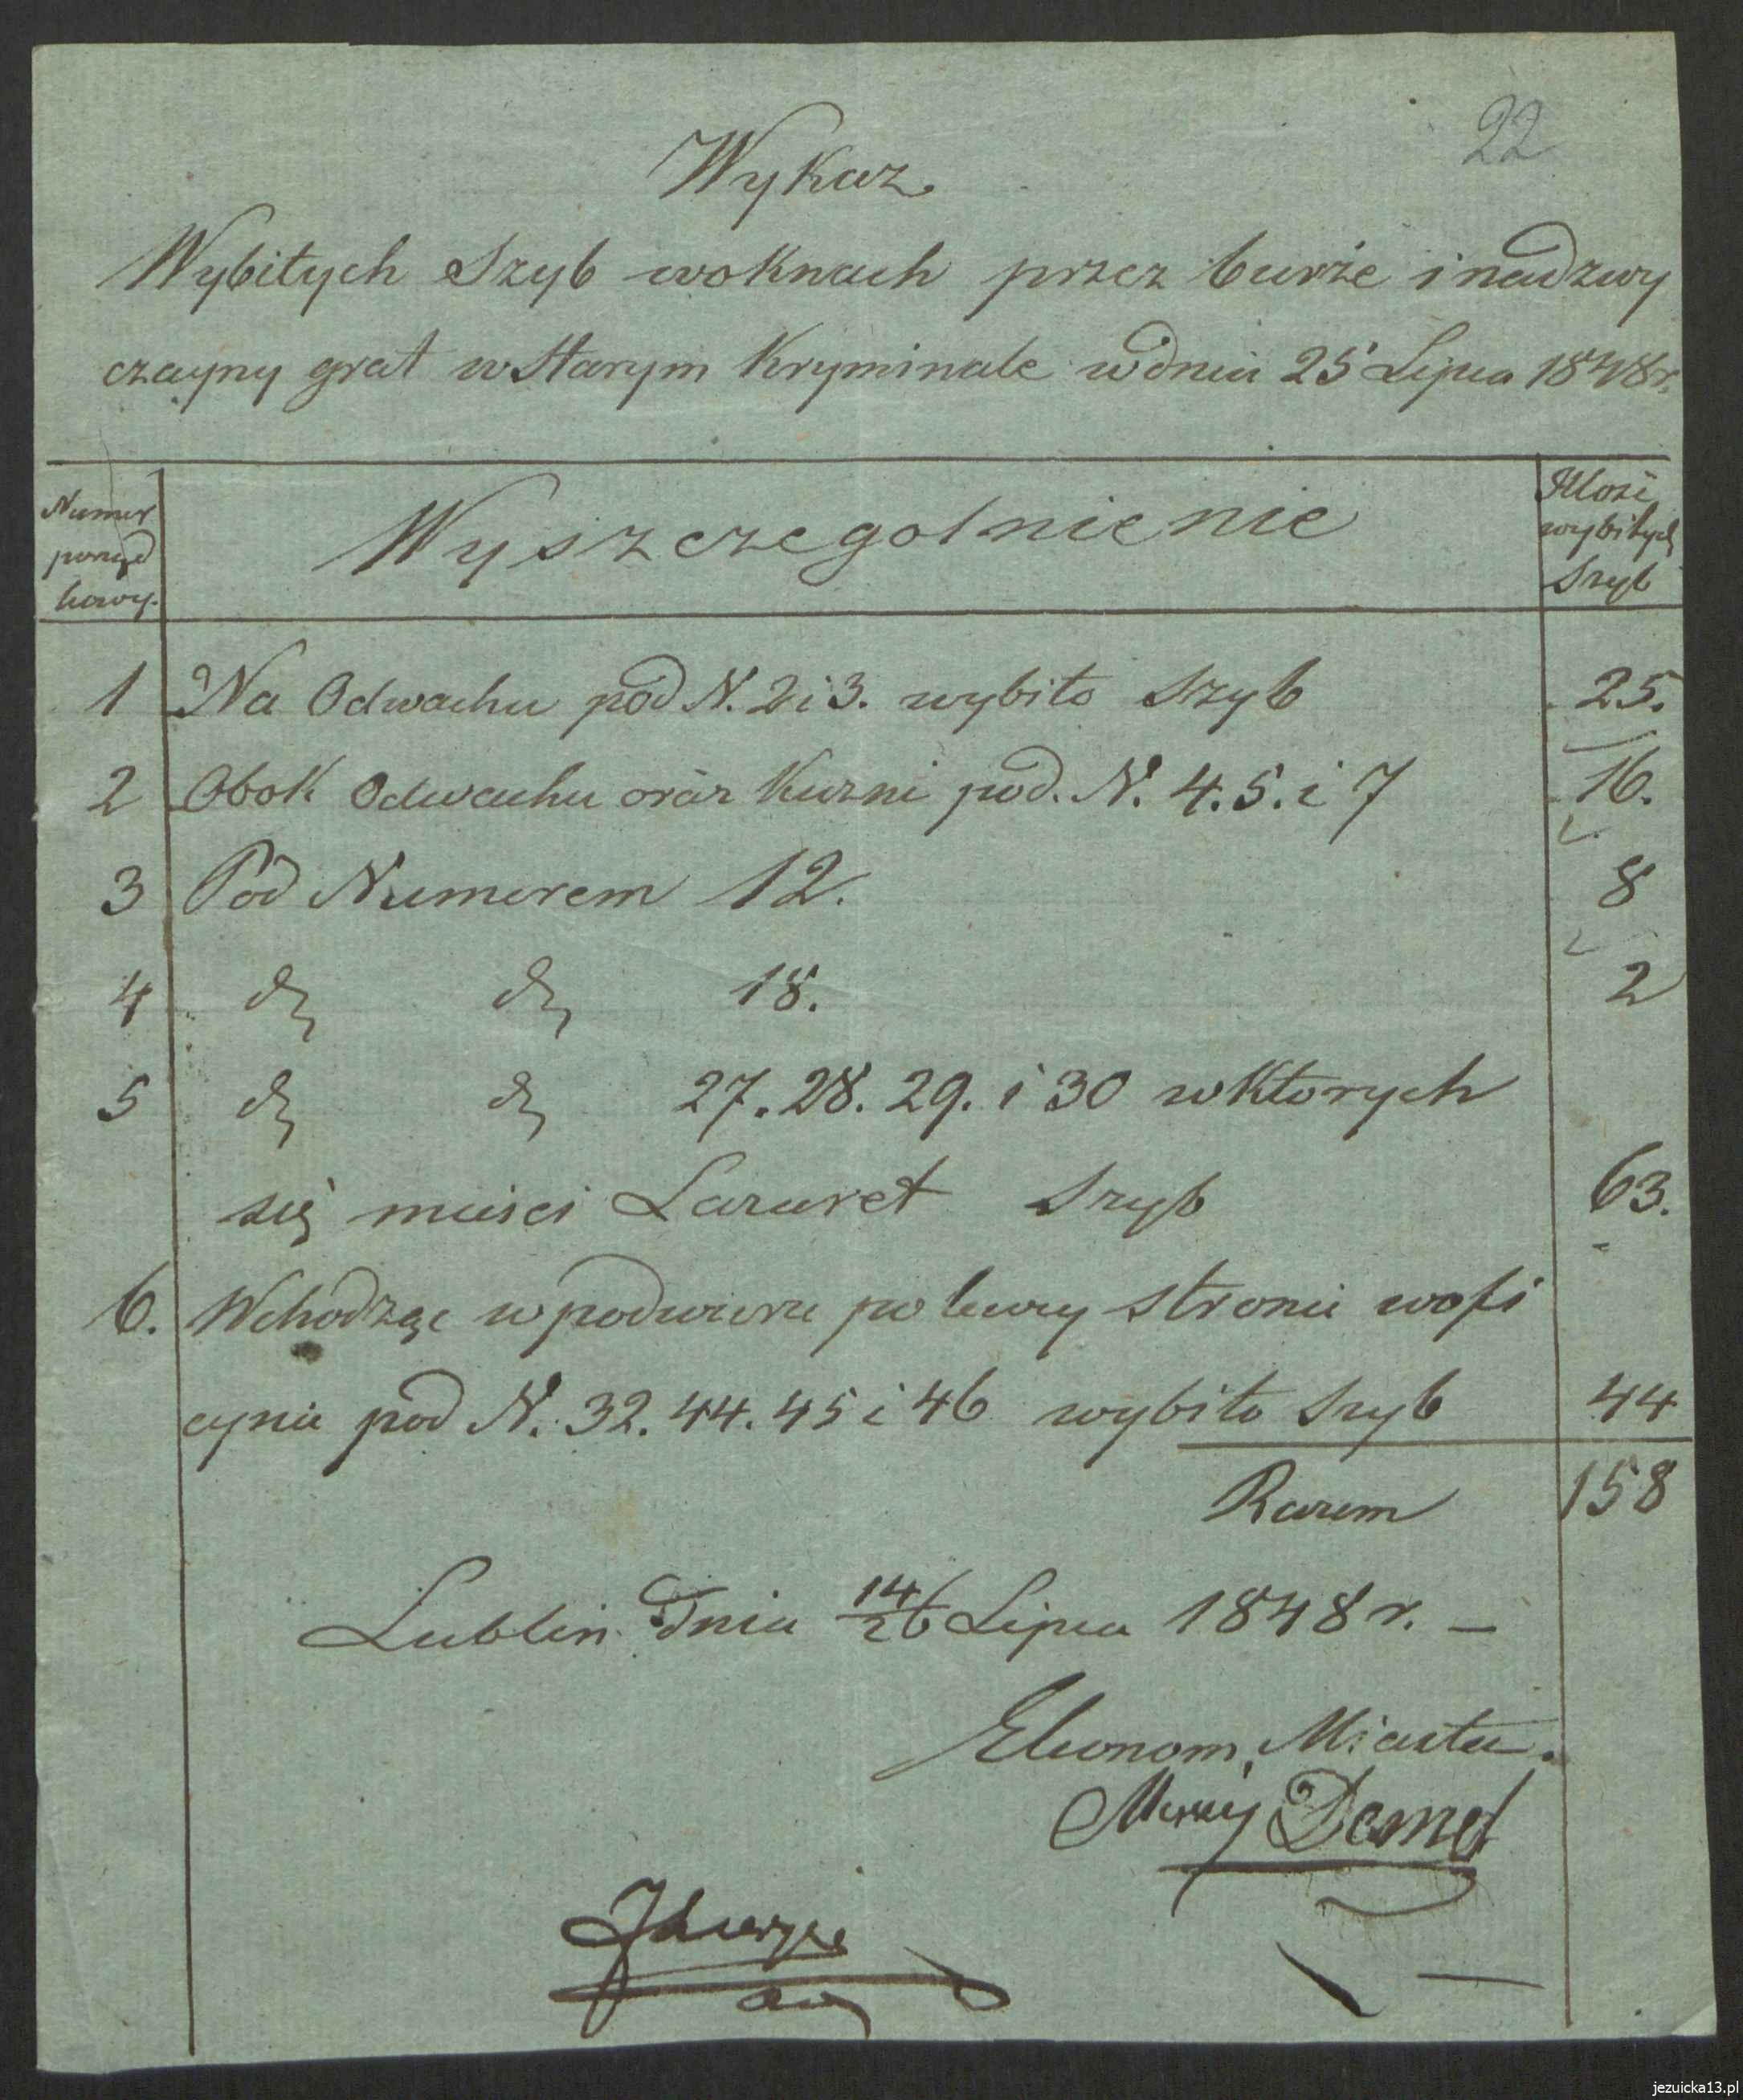 22
Wykaz
Wybitych Szyb woknach przez burże i nadzwy
czayny grat w Starym Kryminale w dniu 25 Lipca 1848 r.
Numer
porząd
kowy.
Wyszczegolnienie
Ilość
wybitych
Szyb
1 Na Odwachu pod N. 2 i 3. wybito Szyb 25.
2 Obok Odwachu oraz Kuzni pod. N. 4. 5. i 7 16.
3 Pod Numerem 12. 8
4 dº dº 18. 2
5 dº dº 27. 28. 29. i 30 wktorych
się mieści Lazaret Szyb 63.
6. Wchodząc w podworze po lewy stronie wofi
cynie pod N. 32. 44. 45 i 46 wybito Szyb 44
Razem 158
Lublin Dnia 14/26 Lipca 1848 r. —
Ekonom Miasta.
Demel
jezuicka13.pl